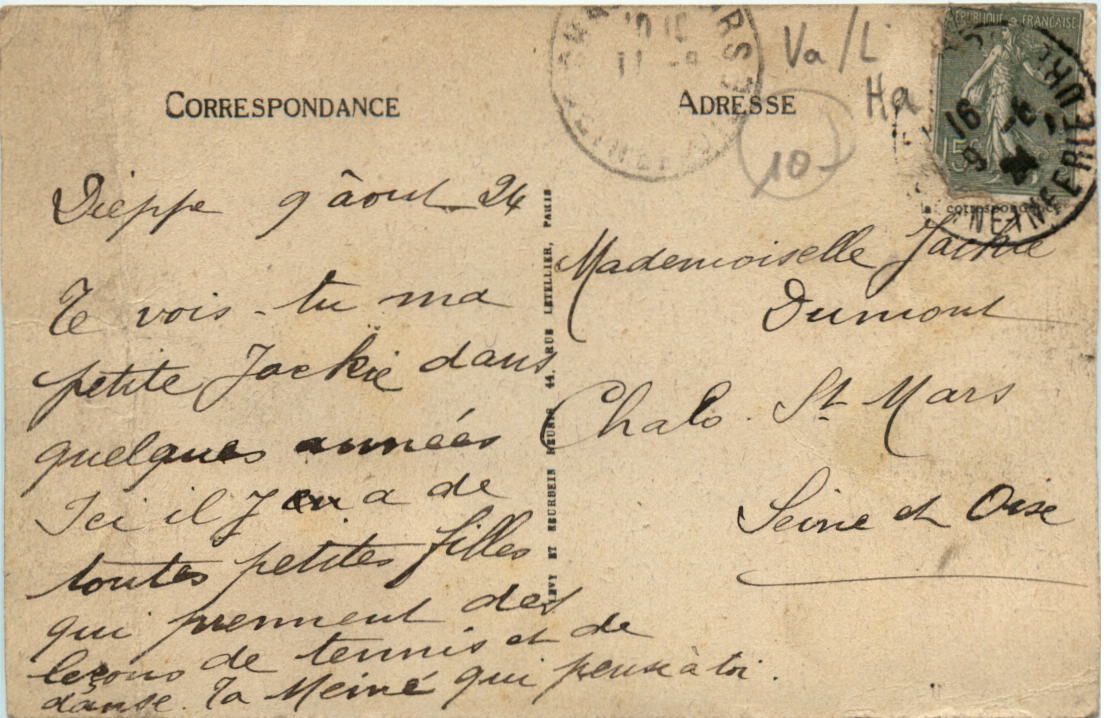 CORRESPONDANCE
Dieppe 9 âout 24
Te vois-tu ma
petite Jackie dans
quelques années
Ici il y en a de
toutes petites filles
qui prennent des
leçons de tennis et de
danse. Ta Meiné qui pense à toi.
LEVY ET NEURDEIN REUNIS, 44, RUE LETELLIER, PARIS
ADRESSE
Va/L
Ha
10-
REPUBLIQUE FRANÇAISE
15c
correspondance
SEINE INFERIEURE
Mademoiselle Jackie
Dumont
Chalo. St Mars
Seine et Oise